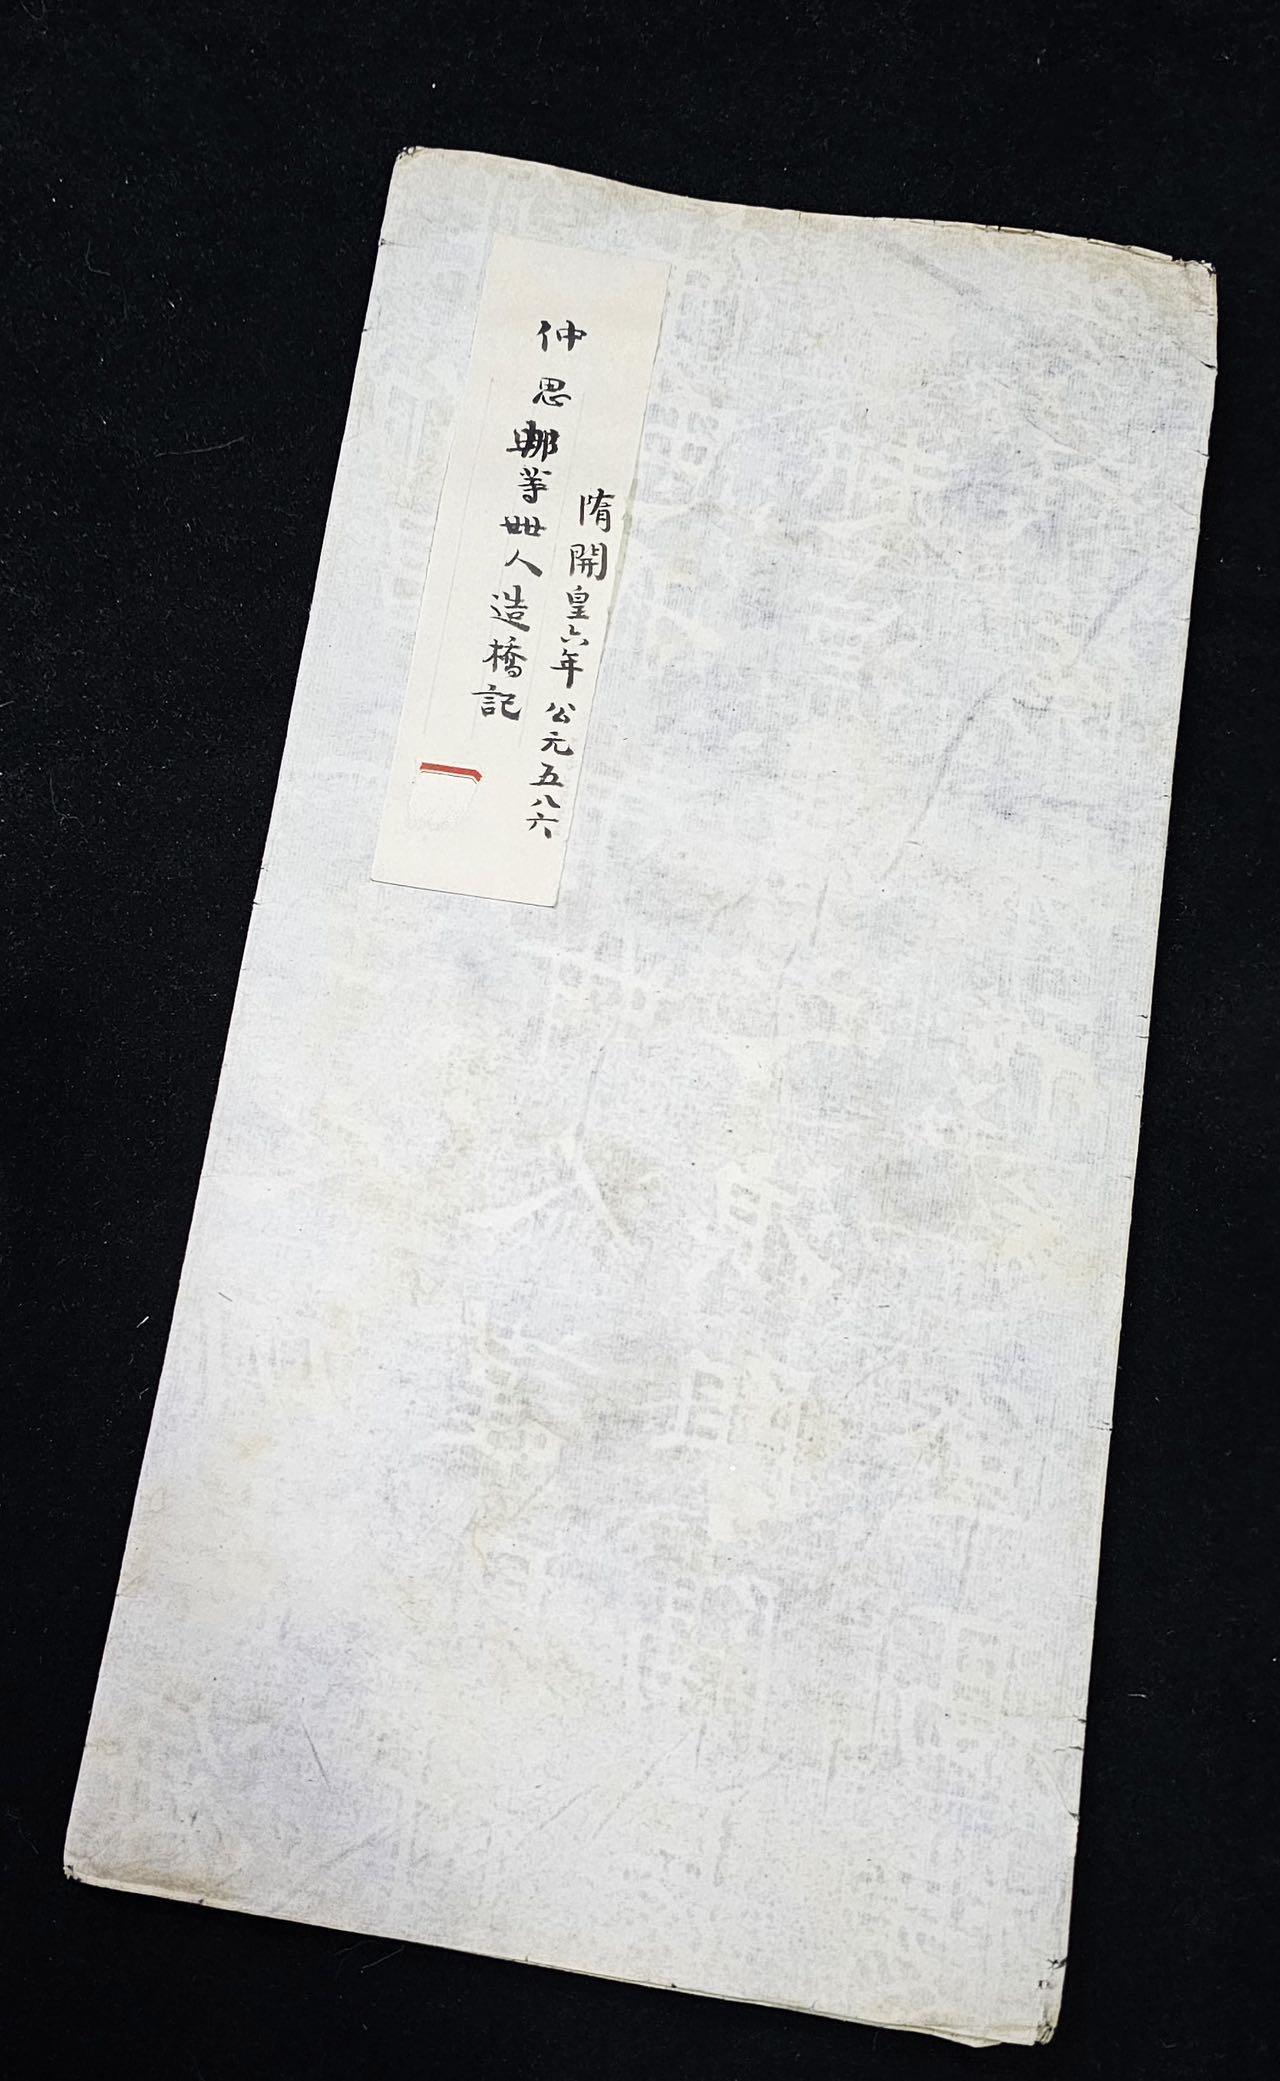 隋開皇六年 公元五八六
仲思那等卌人造橋記